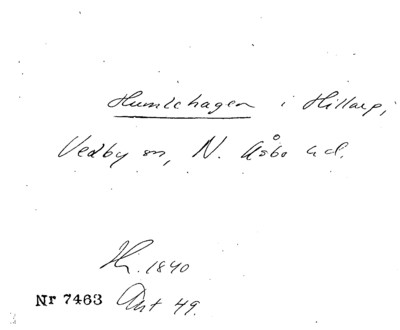 Humlehagen i Hillarp,
Vedby sn, N. Åsbo hd.
Hr. 1840
Nr 7463 Ant 49.